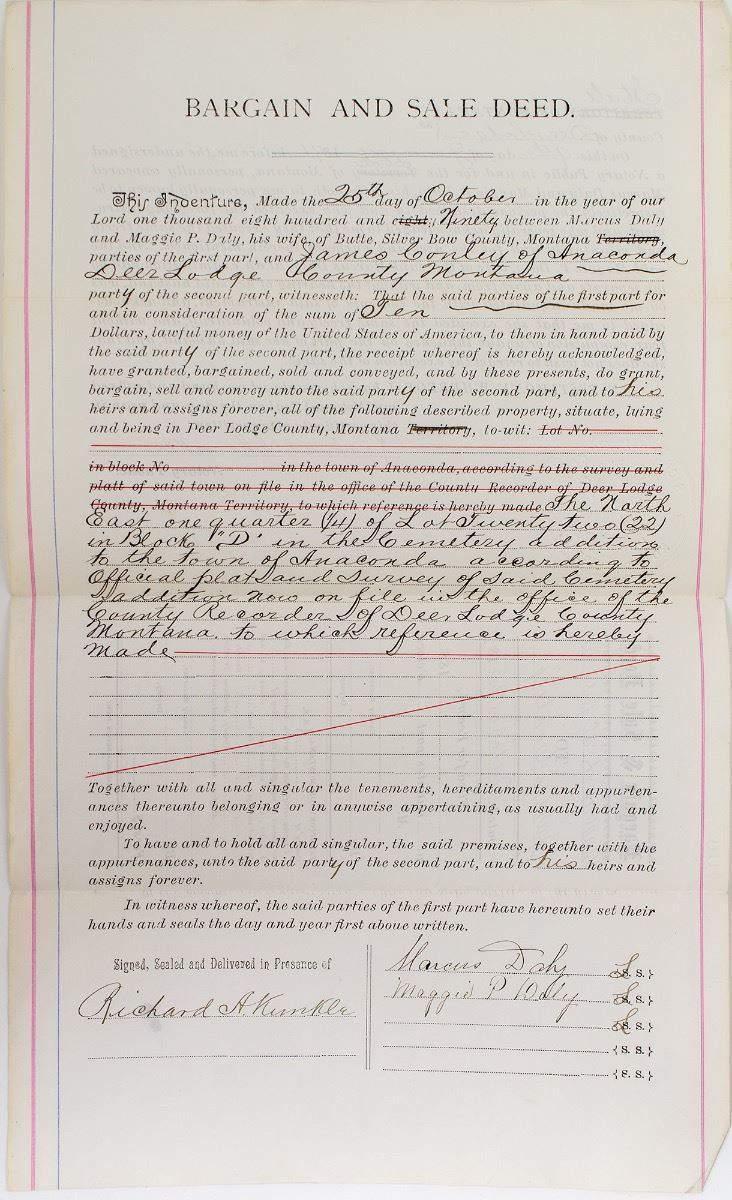 BARGAIN AND SALE DEED.
This Indenture, Made the 25th day of October in the year of our
Lord one thousand eight hundred and eight, Ninety between Marcus Daly
and Maggie P. Daly, his wife, of Butte, Silver Bow County, Montana Territory,
parties of the first part, and James Conley of Anaconda
Deer Lodge County Montana
party of the second part, witnesseth: That the said parties of the first part for
and in consideration of the sum of Ten
Dollars, lawful money of the United States of America, to them in hand paid by
the said party of the second part, the receipt whereof is hereby acknowledged,
have granted, bargained, sold and conveyed, and by these presents, do grant,
bargain, sell and convey unto the said party of the second part, and to his
heirs and assigns forever, all of the following described property, situate, lying
and being in Deer Lodge County, Montana Territory, to-wit: Lot No.
in block No in the town of Anaconda, according to the survey and
platt of said town on file in the office of the County Recorder of Deer Lodge
County, Montana Territory, to which reference is hereby made The North
East one quarter (1/4) of Lot Twenty Two (22)
in Block "D" in the Cemetery addition
to the town of Anaconda according to
Official plat and survey of said Cemetery
addition now on file in the office of the
County Recorder of Deer Lodge County
Montana. to which reference is hereby
made
Together with all and singular the tenements, hereditaments and appurten-
ances thereunto belonging or in anywise appertaining, as usually had and
enjoyed.
To have and to hold all and singular, the said premises, together with the
appurtenances, unto the said party of the second part, and to his heirs and
assigns forever.
In witness whereof, the said parties of the first part have hereunto set their
hands and seals the day and year first above written.
Signed, Sealed and Delivered in Presence of
Richard A Kunkle
Marcus Daly {S. S.}
Maggie P Daly {S. S.}
{S. S.}
{S. S.}
{S. S.}